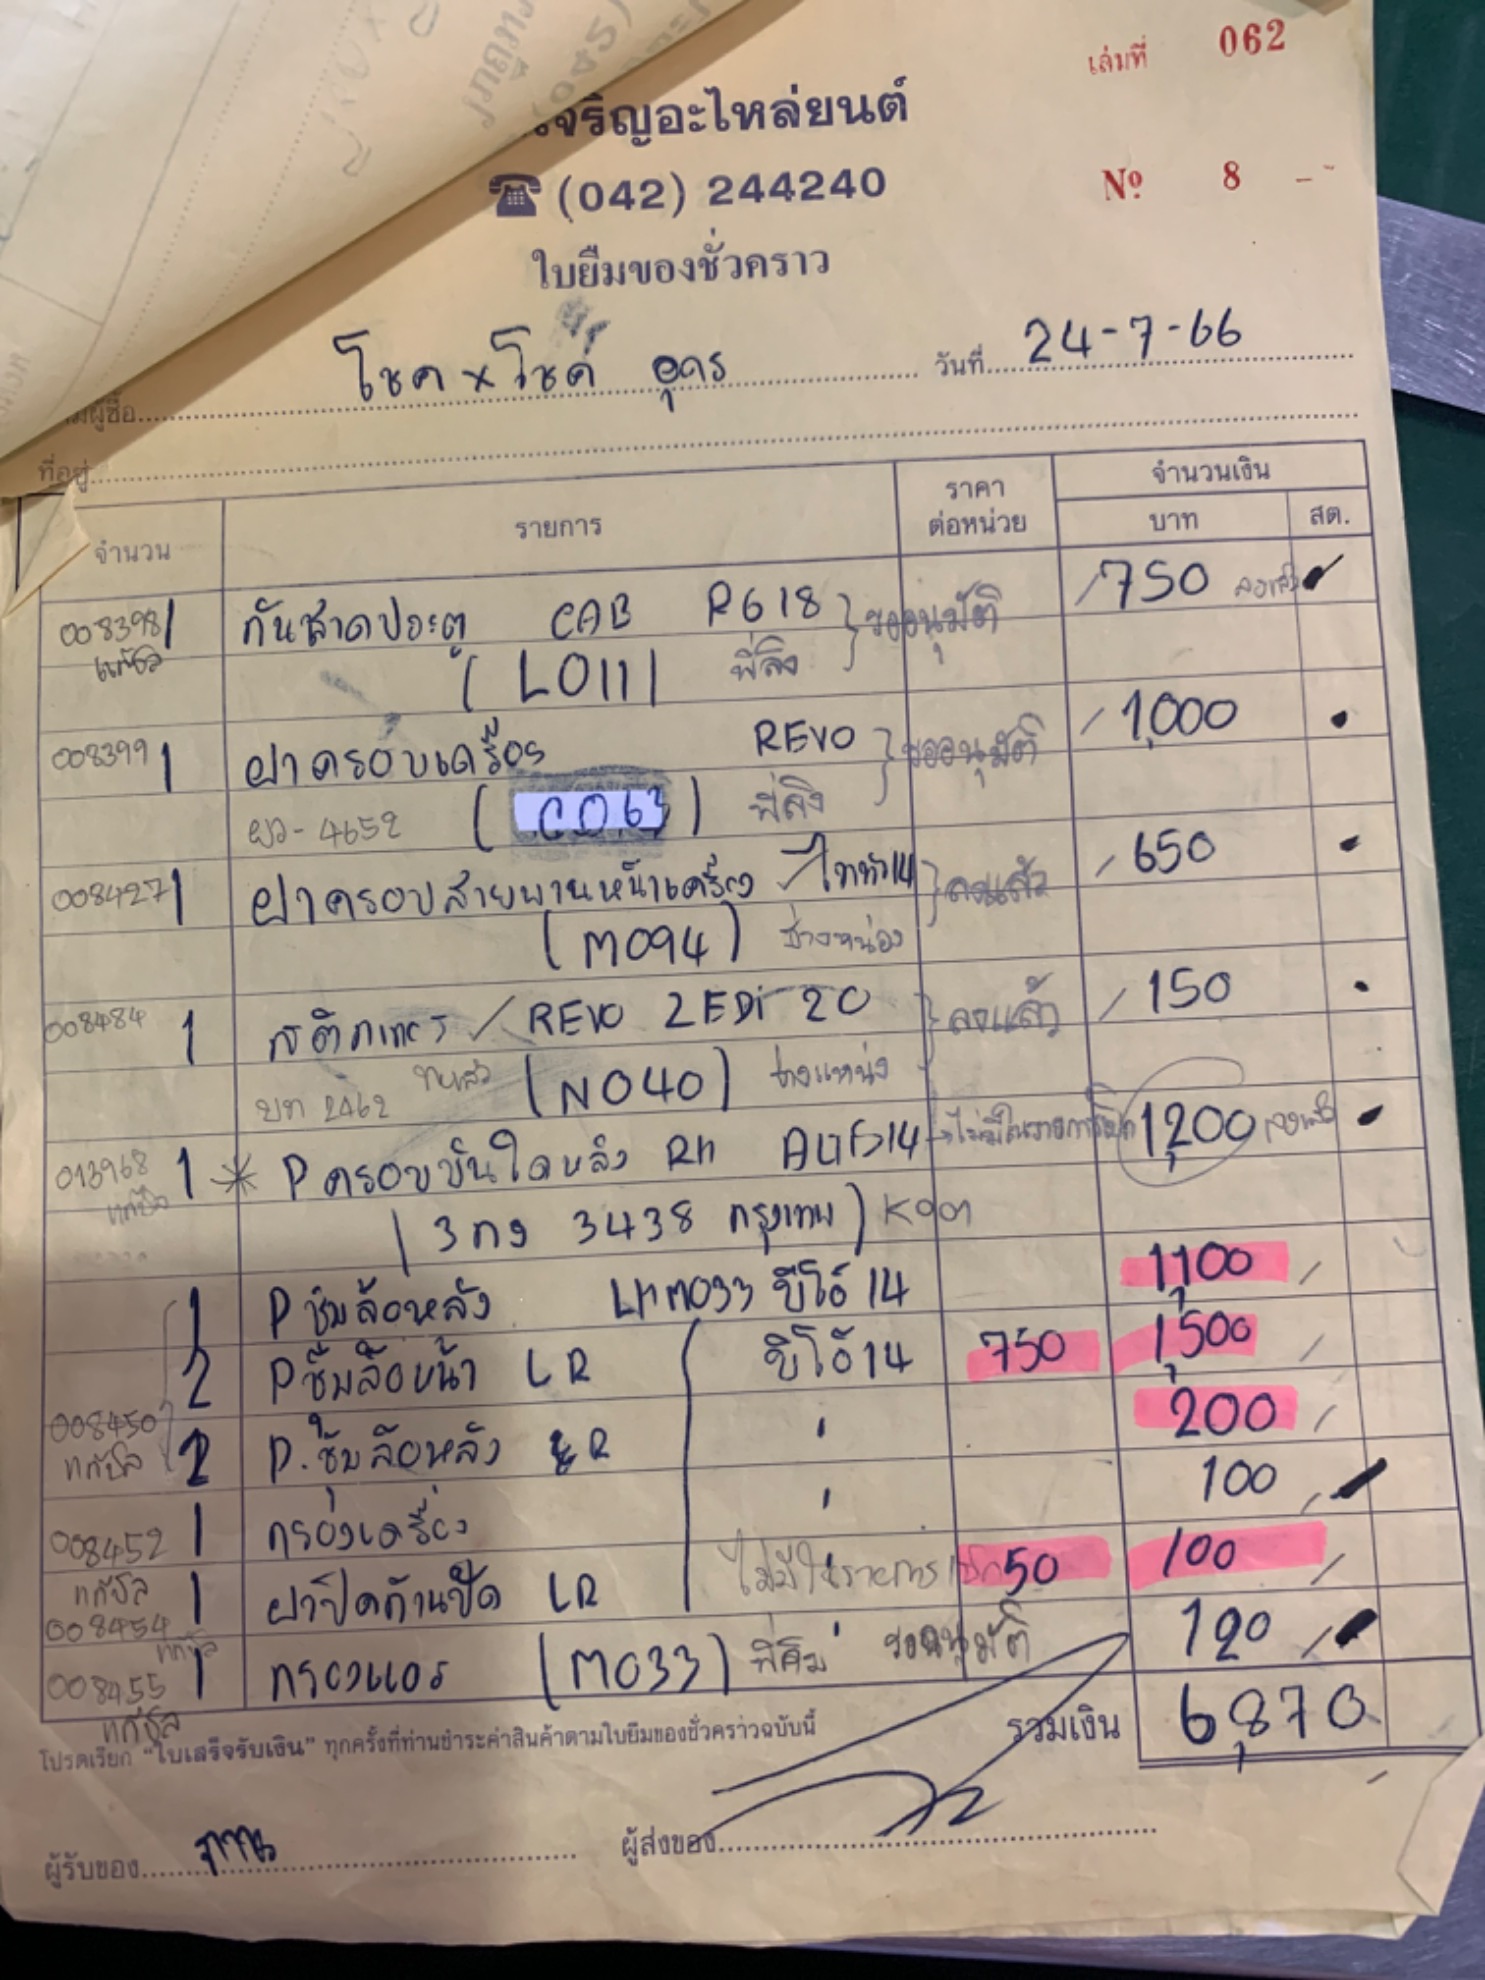 เล่มที่ 062
เจริญอะไหล่ยนต์
☎ (042) 244240
Nº 8
ใบยืมของชั่วคราว
โชค x โชค อุดร วันที่ 24-7-66
ที่อยู่
จำนวน รายการ ราคาต่อหน่วย จำนวนเงิน
บาท สต.
008398 1 กันสาดประตู CAB R618 ขออนุมัติ 750 ลงแล้ว
แก้บิล (L011) พี่ลิง
008399 1 ฝาครอบเครื่อง REVO ขออนุมัติ 1,000
ผว-4652 (C063) พี่ลิง
008427 1 ฝาครอบสายพานหน้าเครื่อง ไททัา14 ลงแล้ว 650
(M094) ช่างหน่อง
008484 1 สติกเกอร์ / REVO ZEDi 20 ลงแล้ว 150
บท 2462 (N040)
013968 1 * P ครอบบันไดหลัง RH ALTIS14 1,200 ลงแล้ว
แก้บิล (3กง 3438 กรุงเทพ)
1 P ซุ้มล้อหลัง LH M033 วีโก้ 14 1,100
2 P ซุ้มล้อหน้า LR วีโก้ 14 750 1,500
008450 2 P. ซุ้มล้อหลัง LR " 200
แก้บิล
008452 1 กรองเครื่อง " 100
แก้บิล
008454 1 ฝาปิดก้านปัด LR 50 100
แก้บิล
008455 1 กรองแอร์ (M033) ขออนุมัติ 120
แก้บิล
รวมเงิน 6,870
โปรดเรียก "ใบเสร็จรับเงิน" ทุกครั้งที่ท่านชำระค่าสินค้าตามใบยืมของชั่วคราวฉบับนี้
ผู้รับของ ผู้ส่งของ